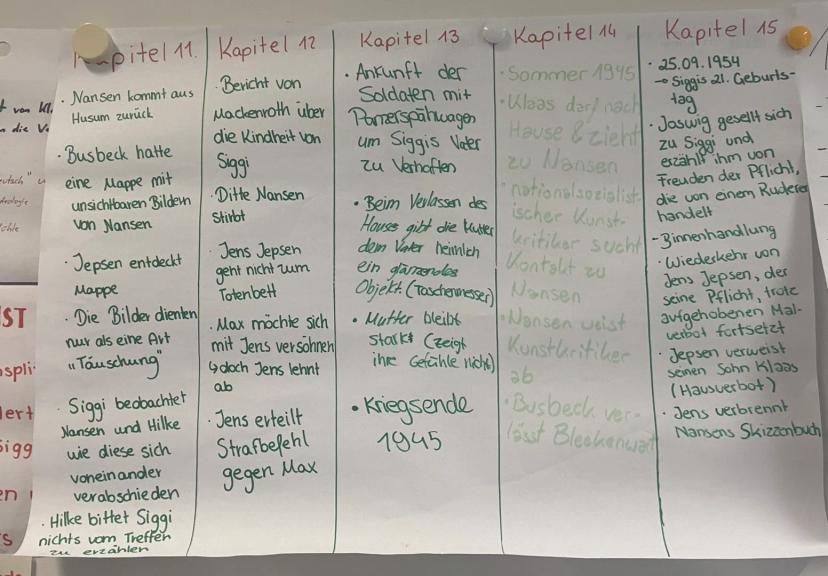 Kapitel 11.
· Nansen kommt aus
Husum zurück
· Busbeck hatte
eine Mappe mit
unsichtbaren Bildern
von Nansen
· Jepsen entdeckt
Mappe
· Die Bilder dienten
nur als eine Art
„Täuschung"
· Siggi beobachtet
Nansen und Hilke
wie diese sich
voneinander
verabschieden
· Hilke bittet Siggi
nichts vom Treffen
zu erzählen
Kapitel 12
· Bericht von
Mackenroth über
die Kindheit von
Siggi
· Ditte Nansen
stirbt
· Jens Jepsen
geht nicht zum
Totenbett
· Max möchte sich
mit Jens versöhnen
↳ doch Jens lehnt
ab
· Jens erteilt
Strafbefehl
gegen Max
Kapitel 13
· Ankunft der
Soldaten mit
Panzerspähwagen
um Siggis Vater
zu Verhaften
· Beim Verlassen des
Hauses gibt die Mutter
dem Vater heimlich
ein
Objekt. (Taschenmesser)
· Mutter bleibt
stark (zeigt
ihre Gefühle nicht)
· Kriegsende
1945
Kapitel 14
· Sommer 1945
· Klaas darf nach
Hause & zieht
zu Nansen
· nationalsozialist-
ischer Kunst-
kritiker sucht
Kontakt zu
Nansen
· Nansen weist
Kunstkritiker
ab
· Busbeck ver-
lässt Bleekenwarf
Kapitel 15
· 25.09.1954
→ Siggis 21. Geburts-
tag
· Joswig gesellt sich
zu Siggi und
erzählt ihm von
Freuden der Pflicht,
die von einem Ruderer
handelt
- Binnenhandlung
· Wiederkehr von
Jens Jepsen, der
seine Pflicht, trotz
aufgehobenen Mal-
verbot fortsetzt
· Jepsen verweist
seinen Sohn Klaas
(Hausverbot)
· Jens verbrennt
Nansens Skizzenbuch